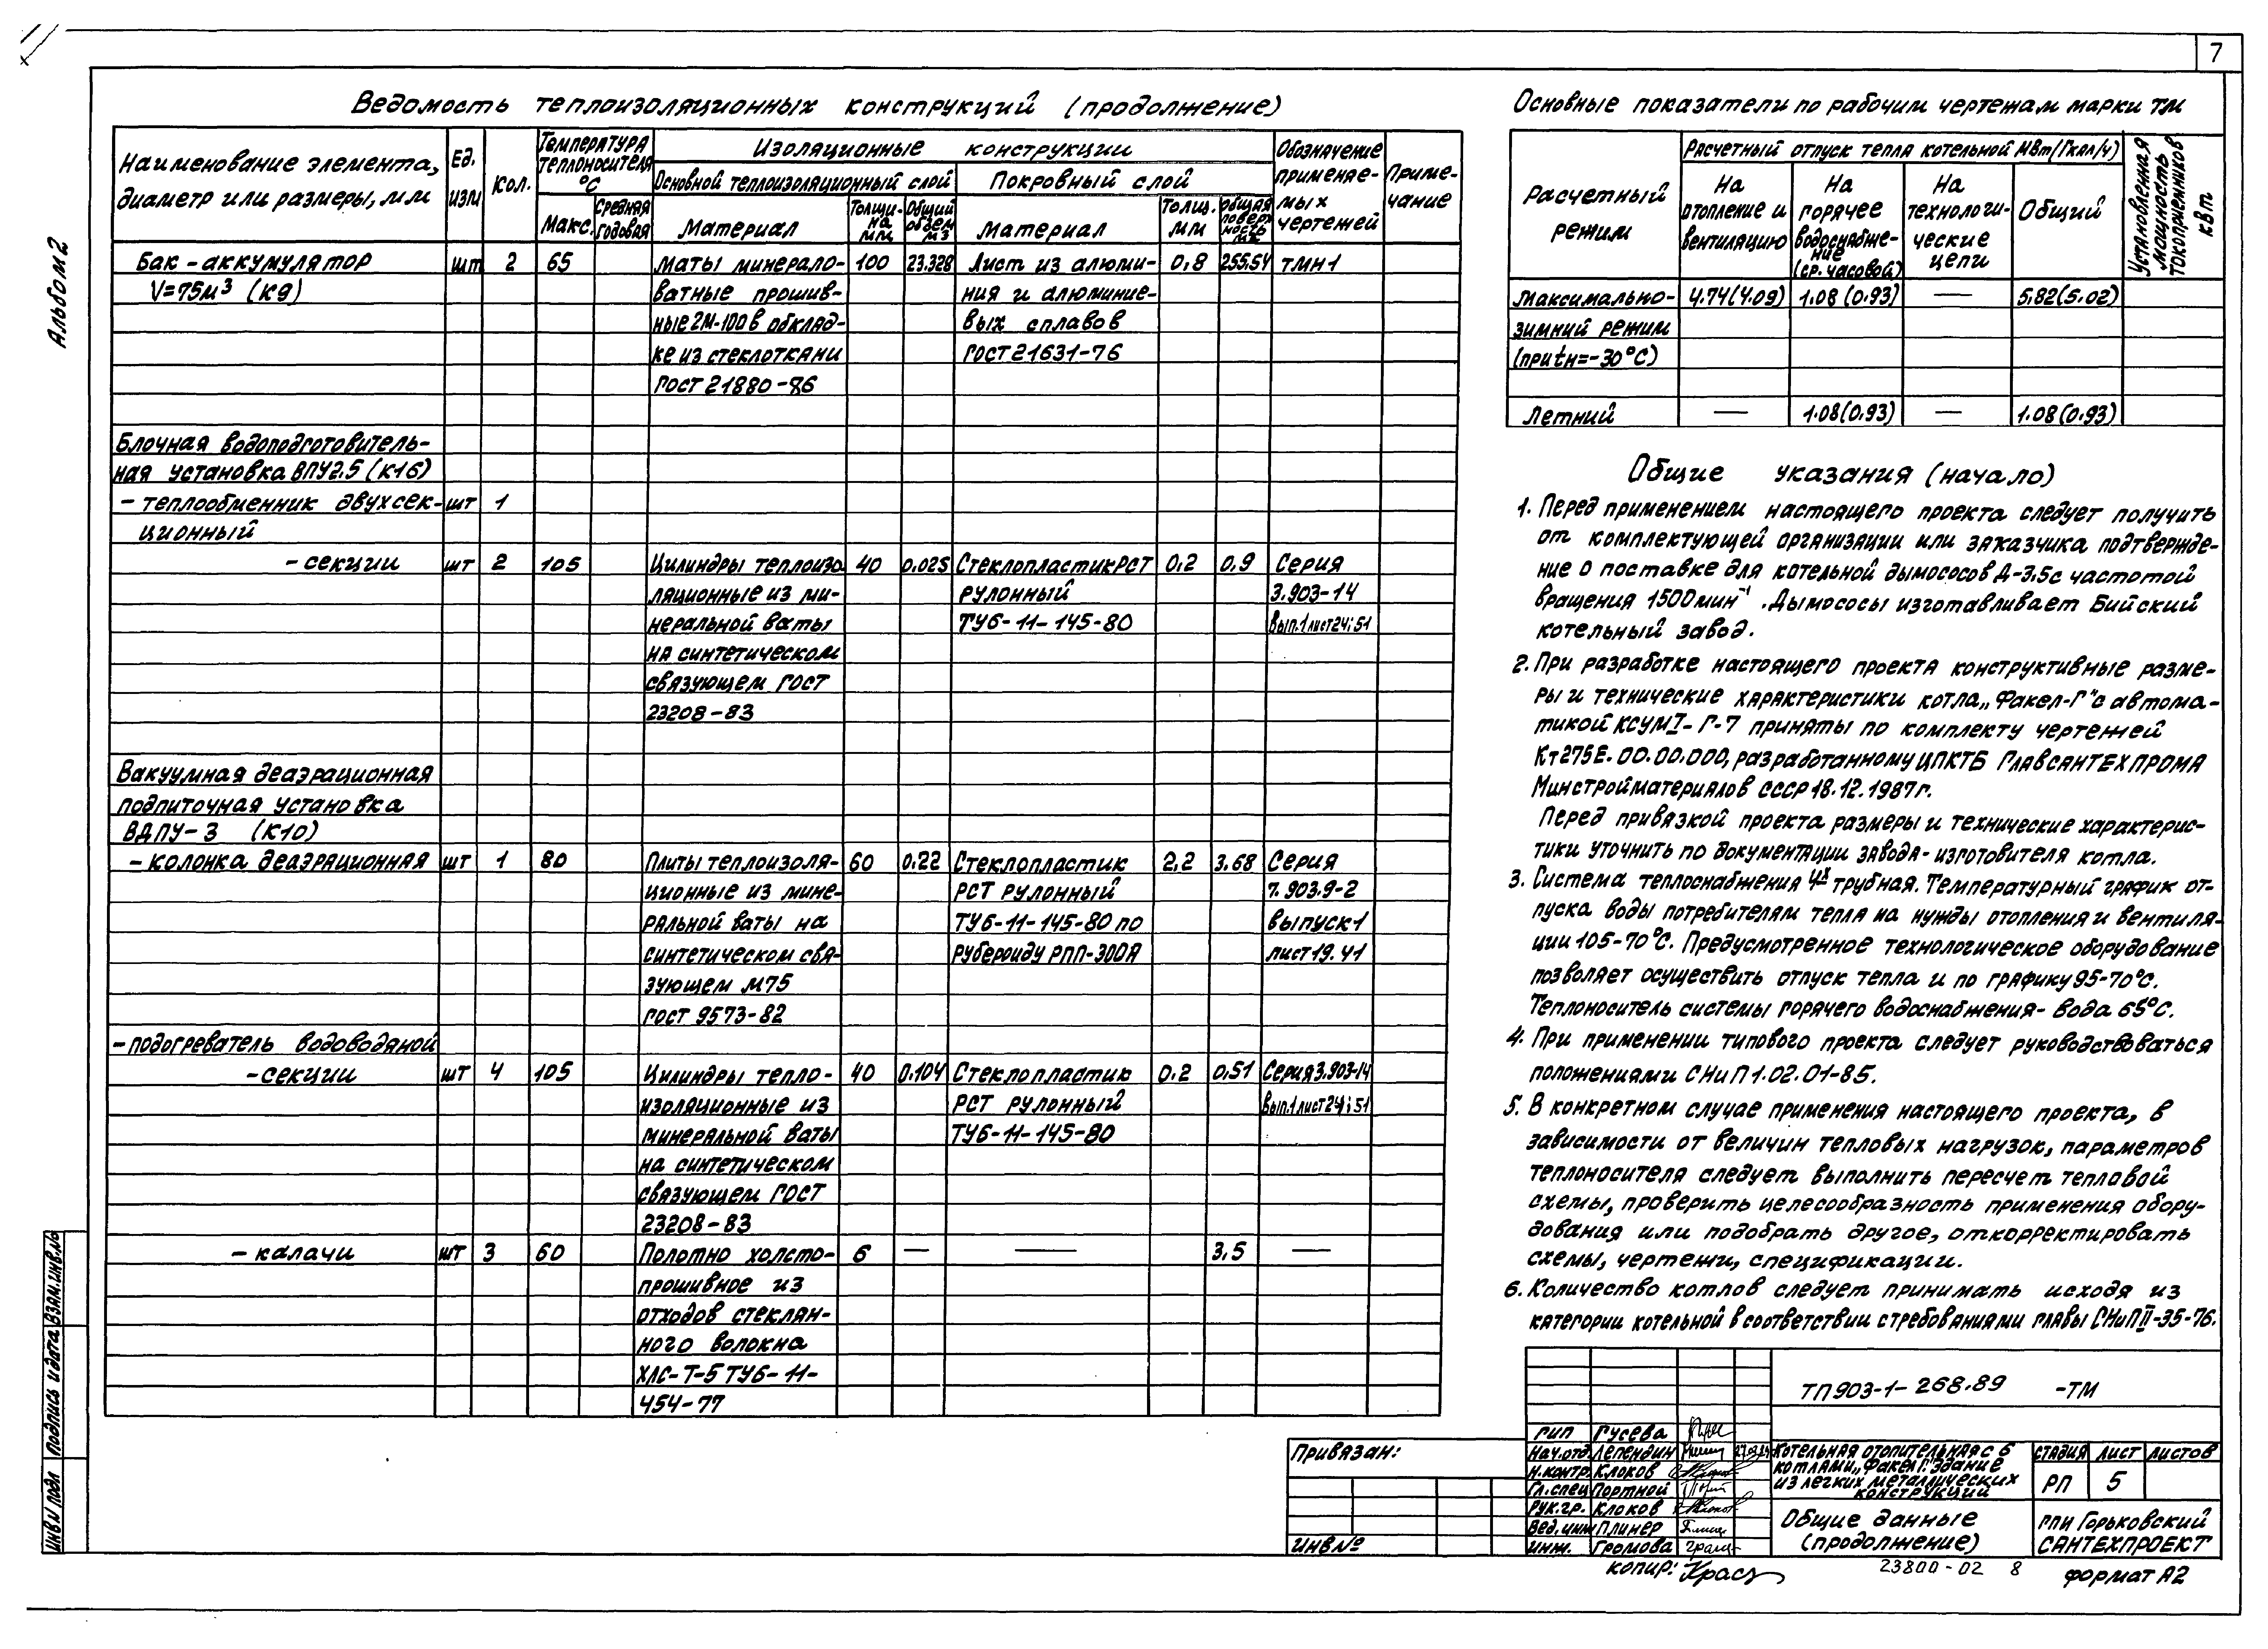 7
Альбом 2
Ведомость теплоизоляционных конструкций (продолжение)
Наименование элемента, диаметр или размеры, мм
Ед. изм
Кол.
Температура теплоносителя °С
Макс.
Средняя годовая
Изоляционные конструкции
Основной теплоизоляционный слой
Покровный слой
Материал
Толщина мм
Общий объем м3
Материал
Толщ. мм
Общая поверхность м2
Обозначение применяемых чертежей
Примечание
Бак-аккумулятор шт 2 65 маты минерало- 100 23.328 Лист из алюми- 0,8 255,54 ТМН1
V=75м³ (К9) ватные прошив- ния и алюминие-
ные 2М-100 в обклад- вых сплавов
ке из стеклоткани ГОСТ 21631-76
ГОСТ 21880-86
Блочная водоподготовитель-
ная установка ВПУ2.5 (К16)
- теплообменник двухсек- шт 1
ционный
- секции шт 2 105 Цилиндры теплоизо 40 0.025 Стеклопластик РСТ 0,2 0,9 Серия
ляционные из ми- рулонный 3.903-14
неральной ваты ТУ6-11-145-80 Вып.1 лист 24; 51
на синтетическом
связующем ГОСТ
23208-83
Вакуумная деаэрационная
подпиточная установка
ВДПУ-3 (К10)
- колонка деаэрационная шт 1 80 Плиты теплоизоля- 60 0.22 Стеклопластик 2,2 3.68 Серия
ционные из мине- РСТ рулонный 7.903.9-2
ральной ваты на ТУ6-11-145-80 по выпуск 1
синтетическом свя- рубероиду РПП-300А лист 19. 41
зующем М75
ГОСТ 9573-82
- подогреватель водоводяной
- секции шт 4 105 Цилиндры тепло- 40 0.104 Стеклопластик 0.2 0,51 Серия 3.903-14
изоляционные из РСТ рулонный Вып.1 лист 24; 51
минеральной ваты ТУ6-11-145-80
на синтетическом
связующем ГОСТ
23208-83
- калачи шт 3 60 Полотно холсто- 6 — — 3,5 —
прошивное из
отходов стеклян-
ного волокна
ХПС-Т-5 ТУ6-11-
454-77
Основные показатели по рабочим чертежам марки ТМ
Расчетный режим
Расчетный отпуск тепла котельной МВт/(Гкал/ч)
На отопление и вентиляцию
На горячее водоснабжение (ср. часовой)
На технологические цели
Общий
Установленная мощность токоприемников кВт
Максимально- 4.74(4.09) 1.08 (0.93) — 5.82(5.02)
зимний режим
(при tн=-30°С)
Летний — 1.08(0.93) — 1.08(0.93)
Общие указания (начало)
1. Перед применением настоящего проекта следует получить
от комплектующей организации или заказчика подтвержде-
ние о поставке для котельной дымососов Д-3,5 с частотой
вращения 1500 мин⁻¹. Дымососы изготавливает Бийский
котельный завод.
2. При разработке настоящего проекта конструктивные разме-
ры и технические характеристики котла „Факел-Г" с автома-
тикой КСУМI-Г-7 приняты по комплекту чертежей
Кт275Е.00.00.000, разработанному ЦПКТБ Главсантехпрома
Минстройматериалов СССР 18.12.1987г.
Перед привязкой проекта размеры и технические характерис-
тики уточнить по документации завода-изготовителя котла.
3. Система теплоснабжения 4х трубная. Температурный график от-
пуска воды потребителям тепла на нужды отопления и вентиля-
ции 105-70°С. Предусмотренное технологическое оборудование
позволяет осуществить отпуск тепла и по графику 95-70°С.
Теплоноситель системы горячего водоснабжения- вода 65°С.
4. При применении типового проекта следует руководствоваться
положениями СНиП 1.02.01-85.
5. В конкретном случае применения настоящего проекта, в
зависимости от величин тепловых нагрузок, параметров
теплоносителя следует выполнить пересчет тепловой
схемы, проверить целесообразность применения обору-
дования или подобрать другое, откорректировать
схемы, чертежи, спецификации.
6. Количество котлов следует принимать исходя из
категории котельной в соответствии с требованиями главы СНиП II-35-76.
ТП 903-1-268.89 -ТМ
ГИП Гусева
Нач.отд. Лепендин
Н.контр. Клоков
Гл.спец Портной
Рук.гр. Клоков
Вед.инж Плинер
Инж. Громова
Котельная отопительная с 6
котлами „Факел Г". Здание
из легких металлических
конструкций
Стадия Лист Листов
РП 5
Общие данные
(продолжение)
ГПИ Горьковский
САНТЕХПРОЕКТ
Привязан:
ИНВ №
Копир:
23800-02 8
Формат А2
Взам.инв.№
Подпись и дата
ИНВ № подл